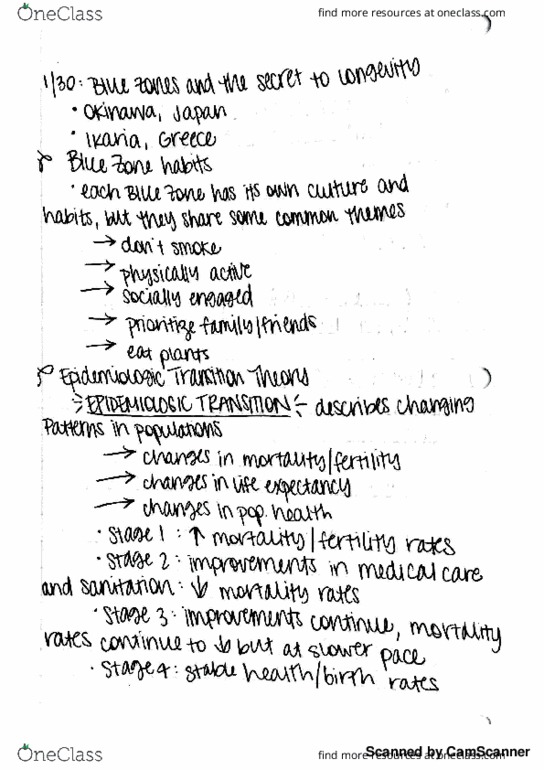 OneClass
find more resources at oneclass.com
1/30: Blue Zones and the secret to longevity
• Okinawa, Japan
• Ikaria, Greece
Blue Zone habits
• each Blue Zone has its own culture and
habits, but they share some common themes
→ don't smoke
→ physically active
→ socially engaged
→ prioritize family/friends
→ eat plants
Epidemiologic Transition Theory
EPIDEMIOLOGIC TRANSITION - describes changing
patterns in populations
→ changes in mortality/fertility
→ changes in life expectancy
→ changes in pop. health
• Stage 1: ↑ mortality/fertility rates
• Stage 2: improvements in medical care
and sanitation: ↓ mortality rates
• Stage 3: improvements continue, mortality
rates continue to ↓ but at slower pace
• Stage 4: stable health/birth rates
OneClass
find more resources at oneclass.com
Scanned by CamScanner